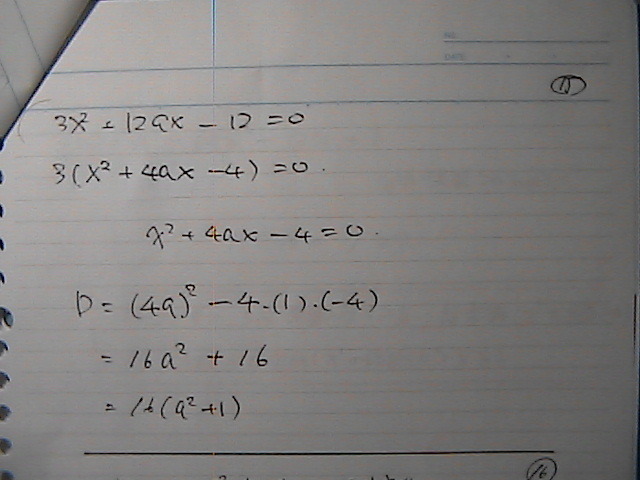 NO.
DATE
⑮
3x² + 12ax - 12 = 0
3(x² + 4ax - 4) = 0.
x² + 4ax - 4 = 0.
D = (4a)² - 4·(1)·(-4)
= 16a² + 16
= 16(a² + 1)
⑯